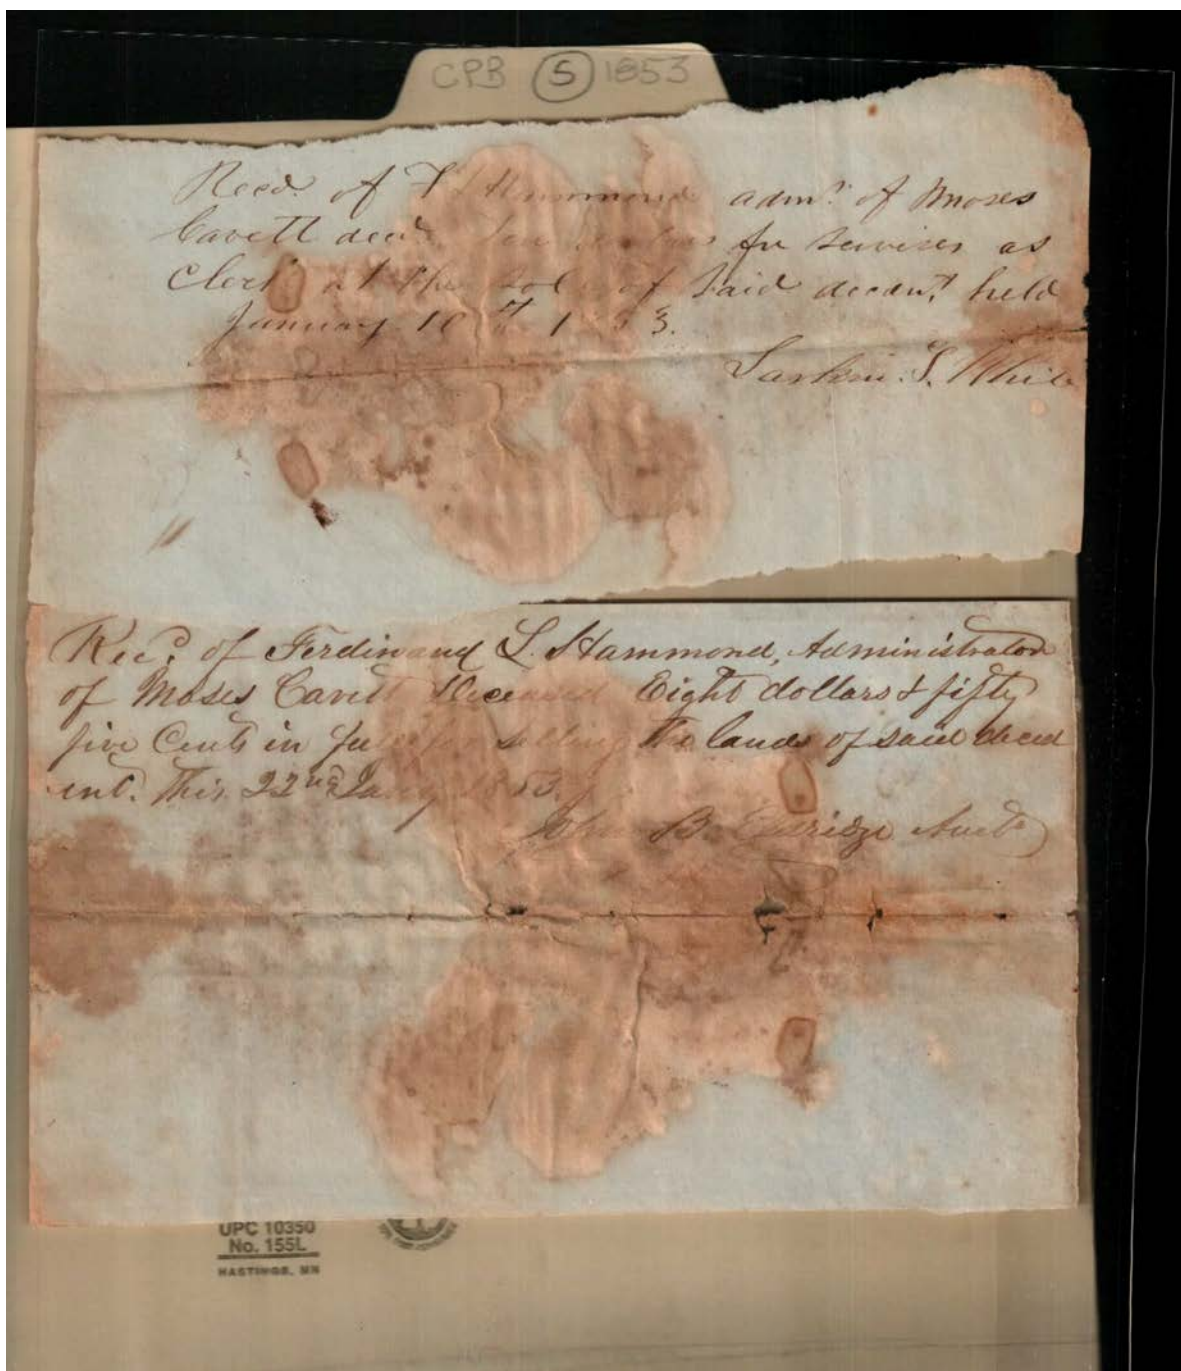 CPB 5 1853
Recd. of F L Hammond admr. of Moses
Cavett decd. for servises as
Clerk at the sale of said decdnt. held
January 10th 1853.
Larkin. T. White
Recd. of Ferdinand L. Hammond, Administrator
of Moses Cavett Deceased Eight dollars & fifty
five Cents in full for selling the lands of said deced
ent. This 22nd Jany 1853.
John B. Auctr
UPC 10350
No. 155L
HASTINGS, MN